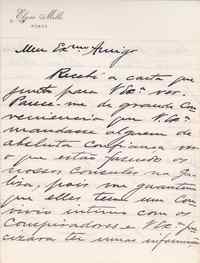 Meu Ex.mo Amigo
Recebi a carta que
junto para V Ex.a ver.
Parece-me de grande con
veniencia que V. Ex.a
mandasse alguem de
absoluta confiança ver
o que estão fazendo os
nossos consules na Ga
liza, pois me garantem
que elles tem um con
vivio intimo com os
conspiradores e V Ex.a pre
cizará ter umas informações